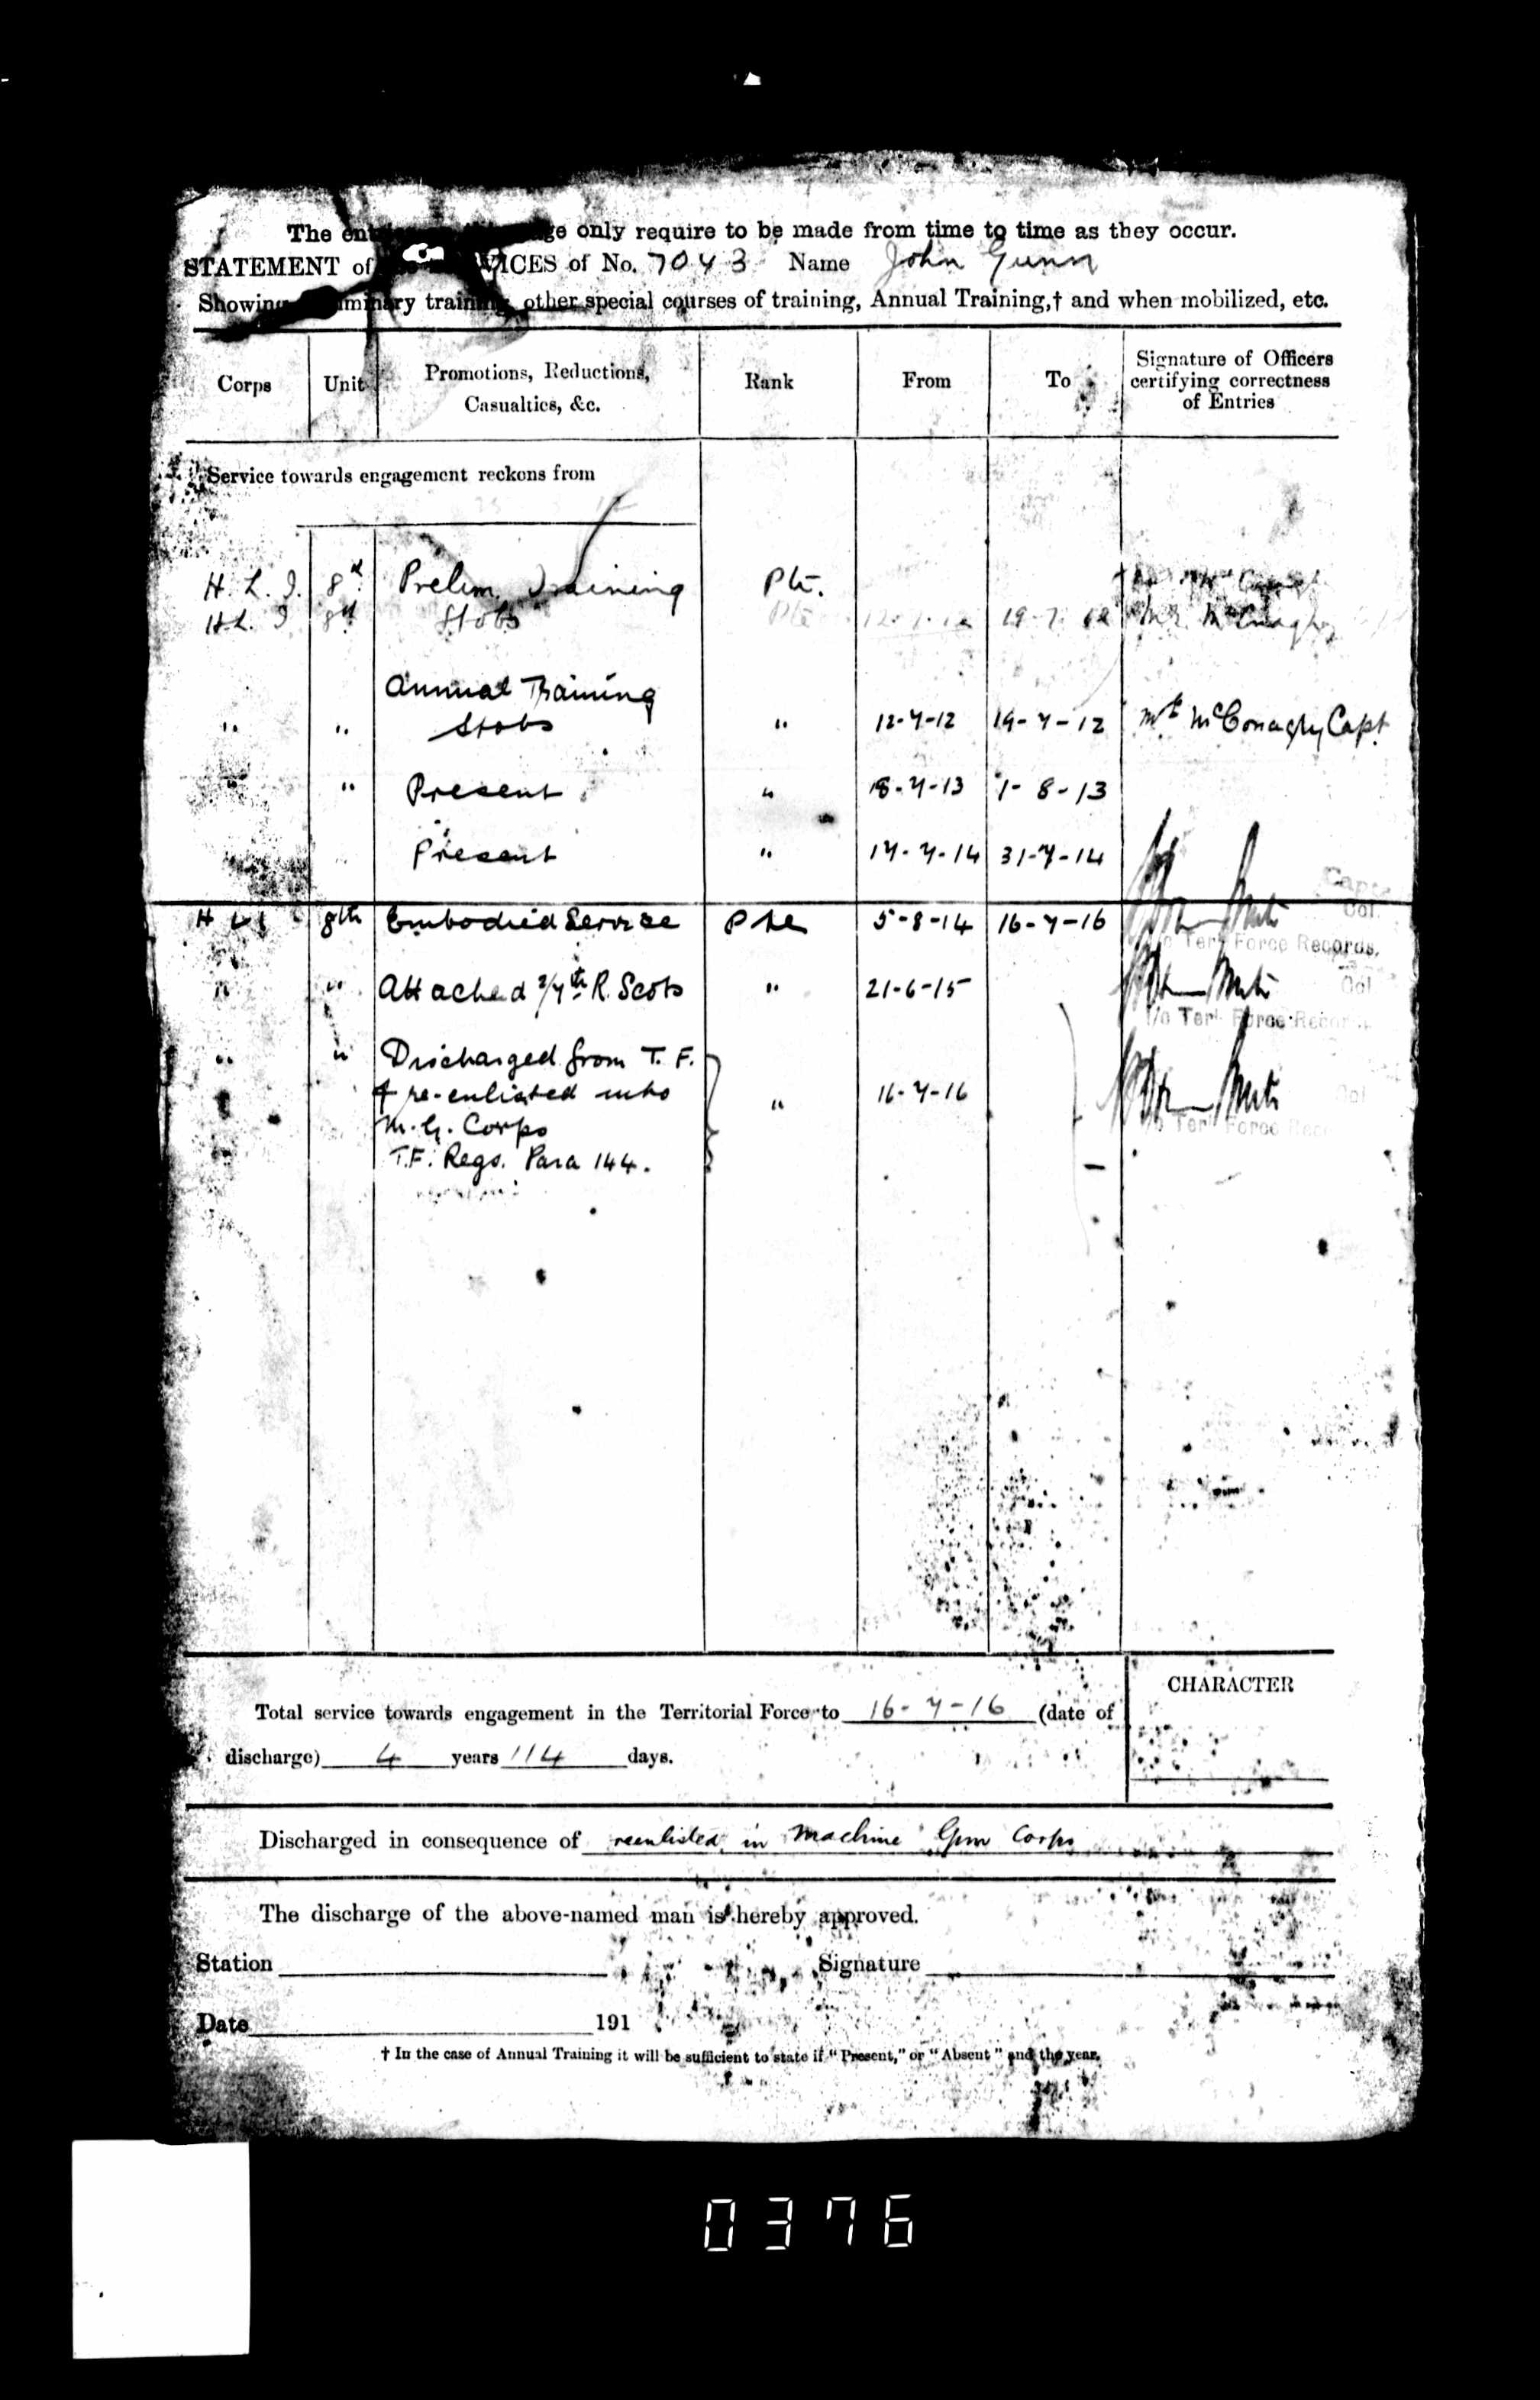 The ent ge only require to be made from time to time as they occur.
STATEMENT of VICES of No. 7043 Name John Gunn
Showing iminary training, other special courses of training, Annual Training,† and when mobilized, etc.
Corps Unit Promotions, Reductions, Casualties, &c. Rank From To Signature of Officers certifying correctness of Entries
Service towards engagement reckons from
H. L. I. 8th Prelim. Training Pte.
H.L. I 8th Stobs Pte 12.7.12 19.7.12
Annual Training
" " Stobs " 12-7-12 19-7-12 Mt McConaghy Capt.
" " Present " 18-7-13 1-8-13
" Present " 17-7-14 31-7-14
Capt
H L I 8th Embodied Service Pte 5-8-14 16-7-16 Col
Terr Force Records.
" " Attached 2/7th R. Scots " 21-6-15 Col
i/c Terr Force Recor
" " Discharged from T. F.
& re-enlisted into " 16-7-16 Col
M. G. Corps Terr Force Rec
T.F. Regs. Para 144.
CHARACTER
Total service towards engagement in the Territorial Force to 16-7-16 (date of
discharge) 4 years 114 days.
Discharged in consequence of reenlisted in Machine Gun Corps
The discharge of the above-named man is hereby approved.
Station Signature
Date 191
† In the case of Annual Training it will be sufficient to state if "Present," or "Absent" and the year.
0376